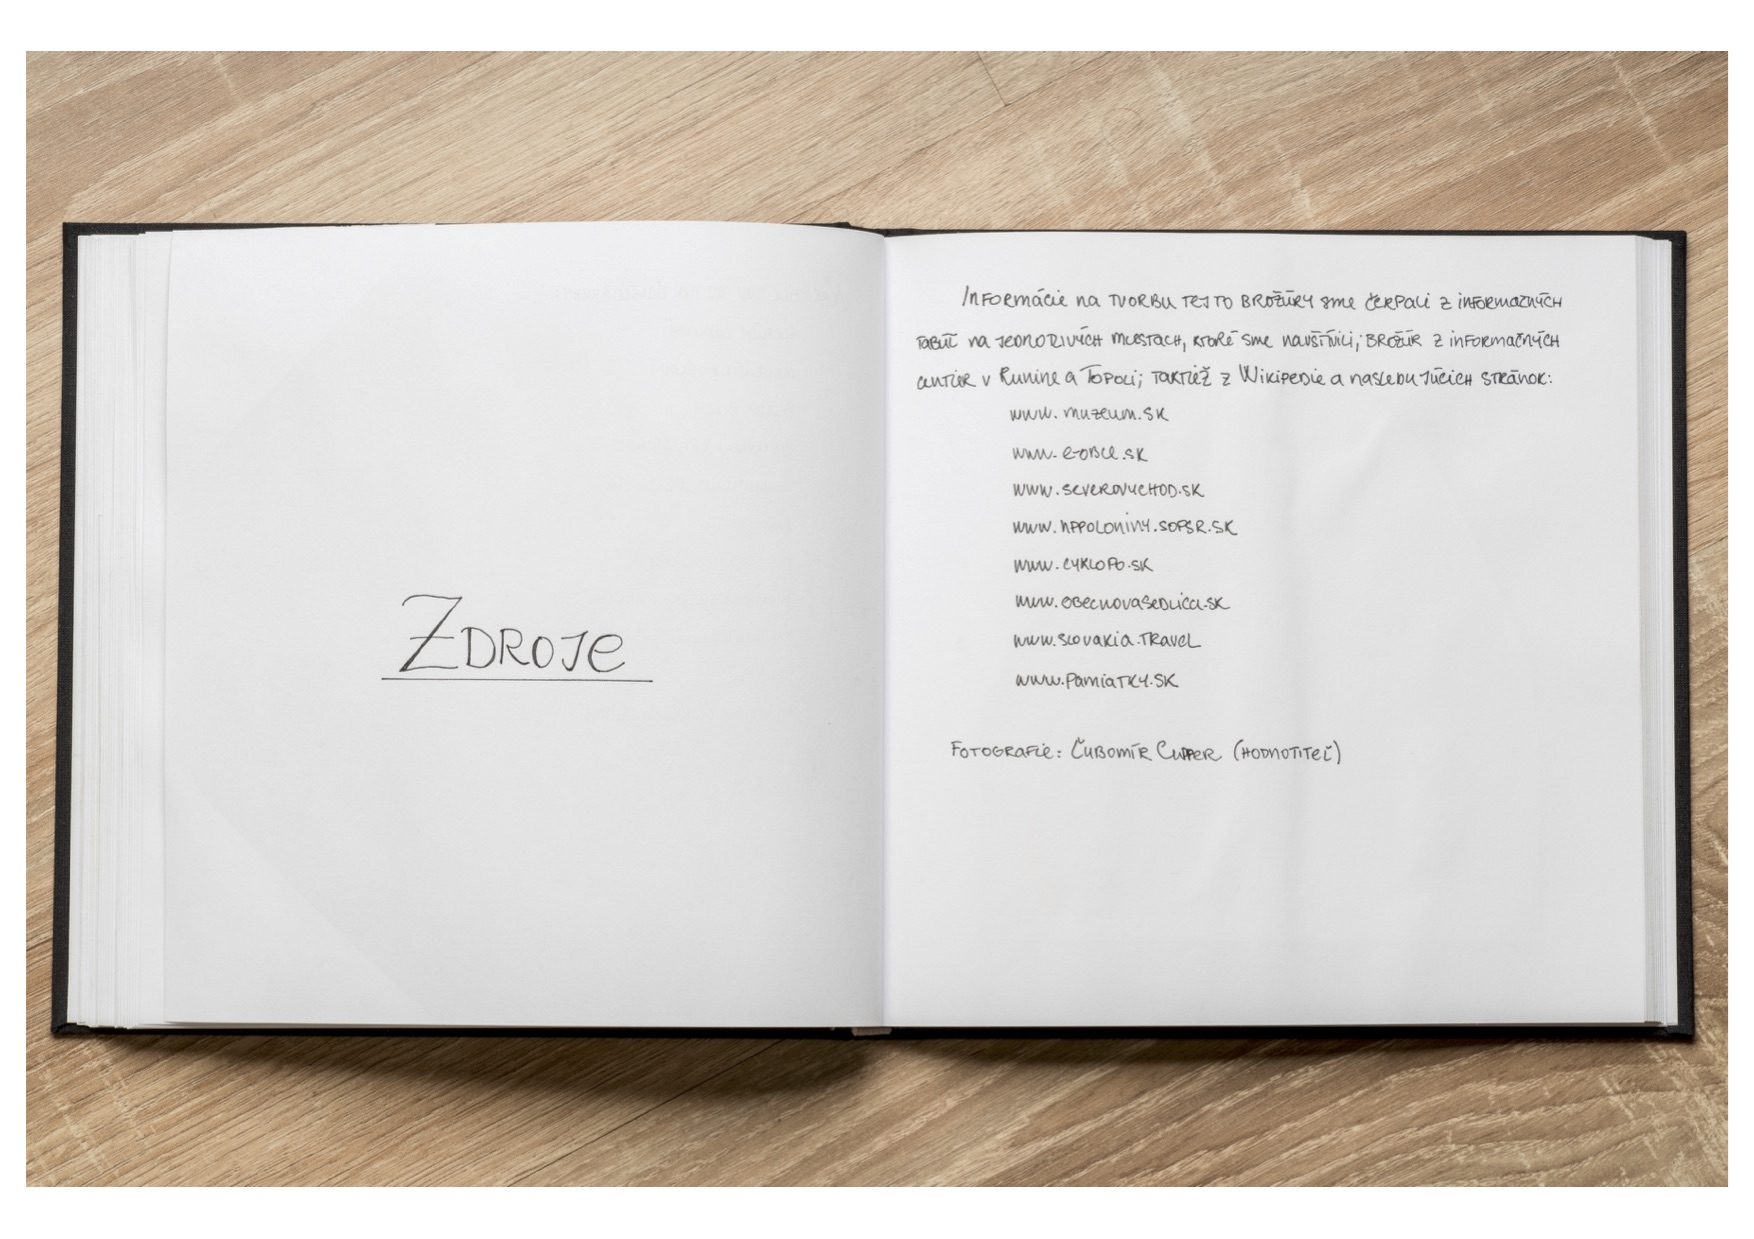 Zdroje
Informácie na tvorbu tejto brožúry sme čerpali z informačných
tabúľ na jednotlivých miestach, ktoré sme navštívili; brožúr z informačných
centier v Runine a Topoli; taktiež z Wikipedie a nasledujúcich stránok:
www.muzeum.sk
www.e-obce.sk
www.severovychod.sk
www.nppoloniny.sopsr.sk
www.cyklopo.sk
www.obecnovasedlica.sk
www.slovakia.travel
www.pamiatky.sk
Fotografie: Ľubomír Cupper (hodnotiteľ)